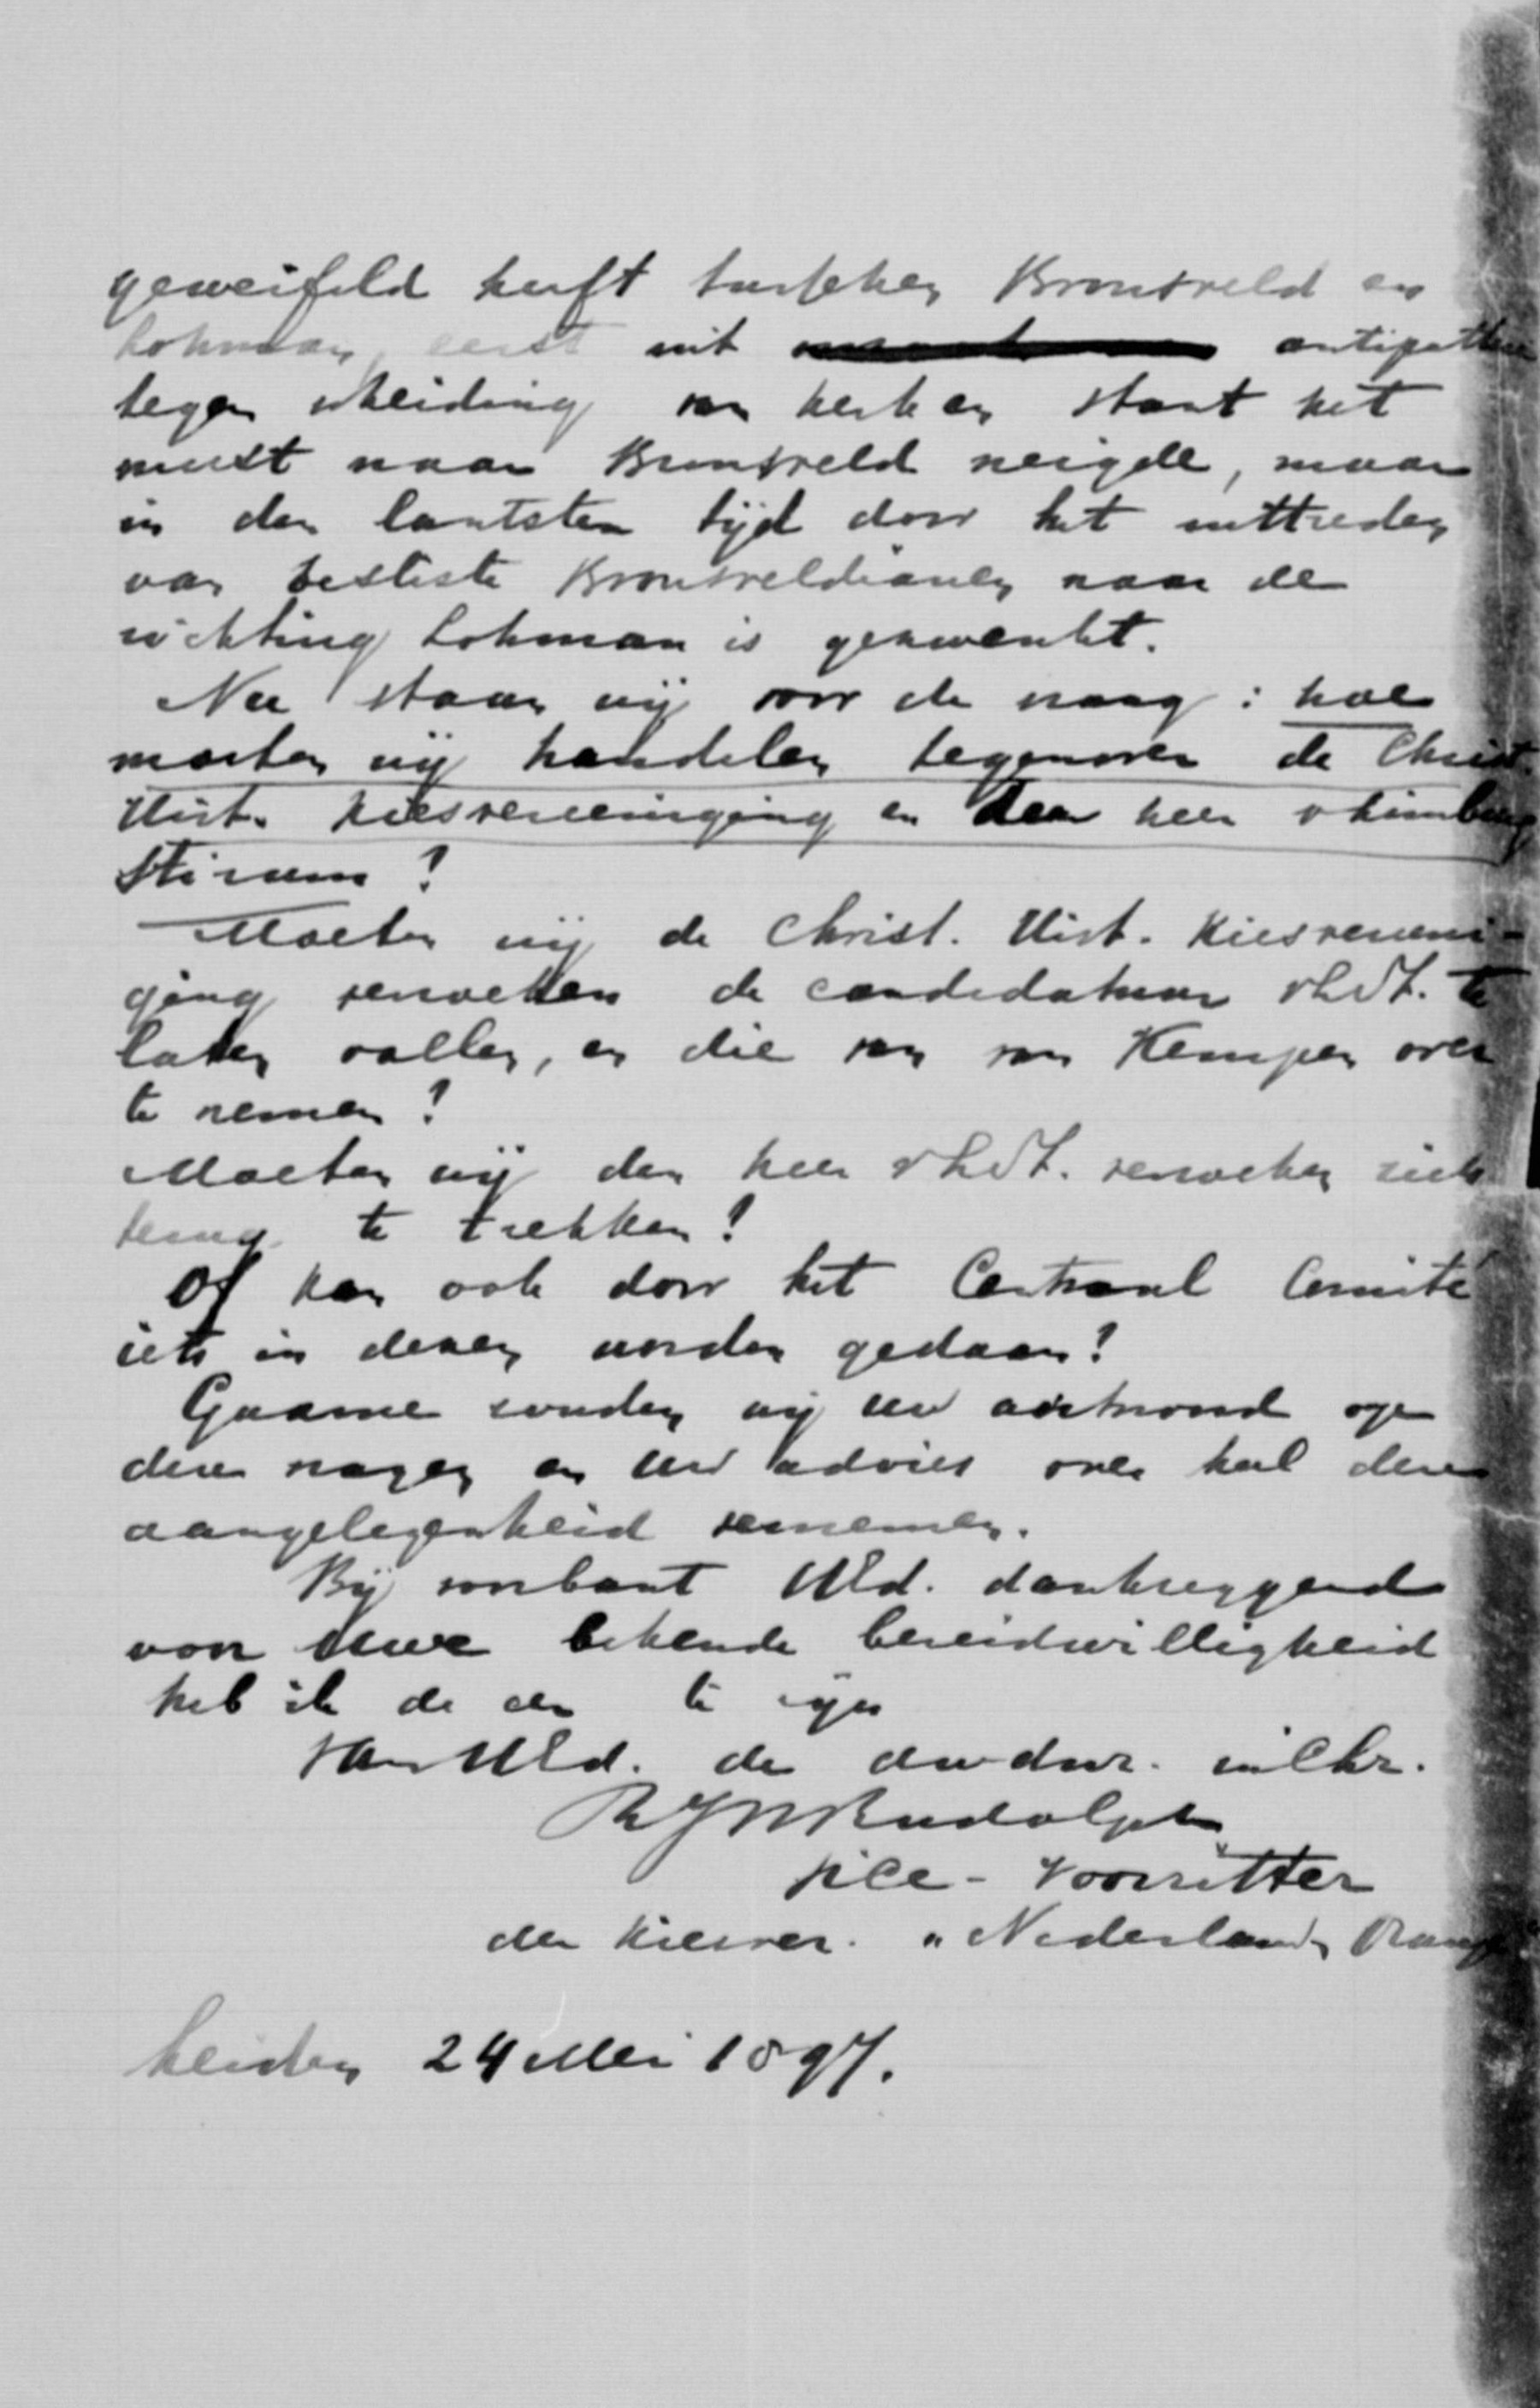 geweifeld heeft tusschen Bronsveld en
Lohman, eerst uit antipathie
tegen scheiding van kerk en staat het
meest naar Bronsveld neigde, maar
in den laatsten tijd door het uittreden
van besliste Bronsveldianen naar de
richting Lohman is gezwenkt.
Nu staan wij voor de vraag: hoe
moeten wij handelen tegenover de Christ.
Hist. Kiesvereeniging en den heer v Limburg
Stirum?
Moeten wij de Christ. Hist. Kiesvereeni-
ging verzoeken de candidatuur vLSt. te
laten vallen, en die van van Kempen over
te nemen?
Moeten wij den heer vLSt. verzoeken zich
terug te trekken?
Of kan ook door het Centraal Comité
iets in dezen worden gedaan?
Gaarne zouden wij uw antwoord op
deze vragen en uw advies over heel deze
aangelegenheid vernemen.
Bij voorbaat UEd. dankzeggend
voor Uwe bekende bereidwilligheid
heb ik de eer te zijn
van UEd. de dw dnr. in Chr.
RJW Rudolph
Vice-Voorzitter
der Kiesver. "Nederland en Oranje
Leiden 24 Mei 1897.